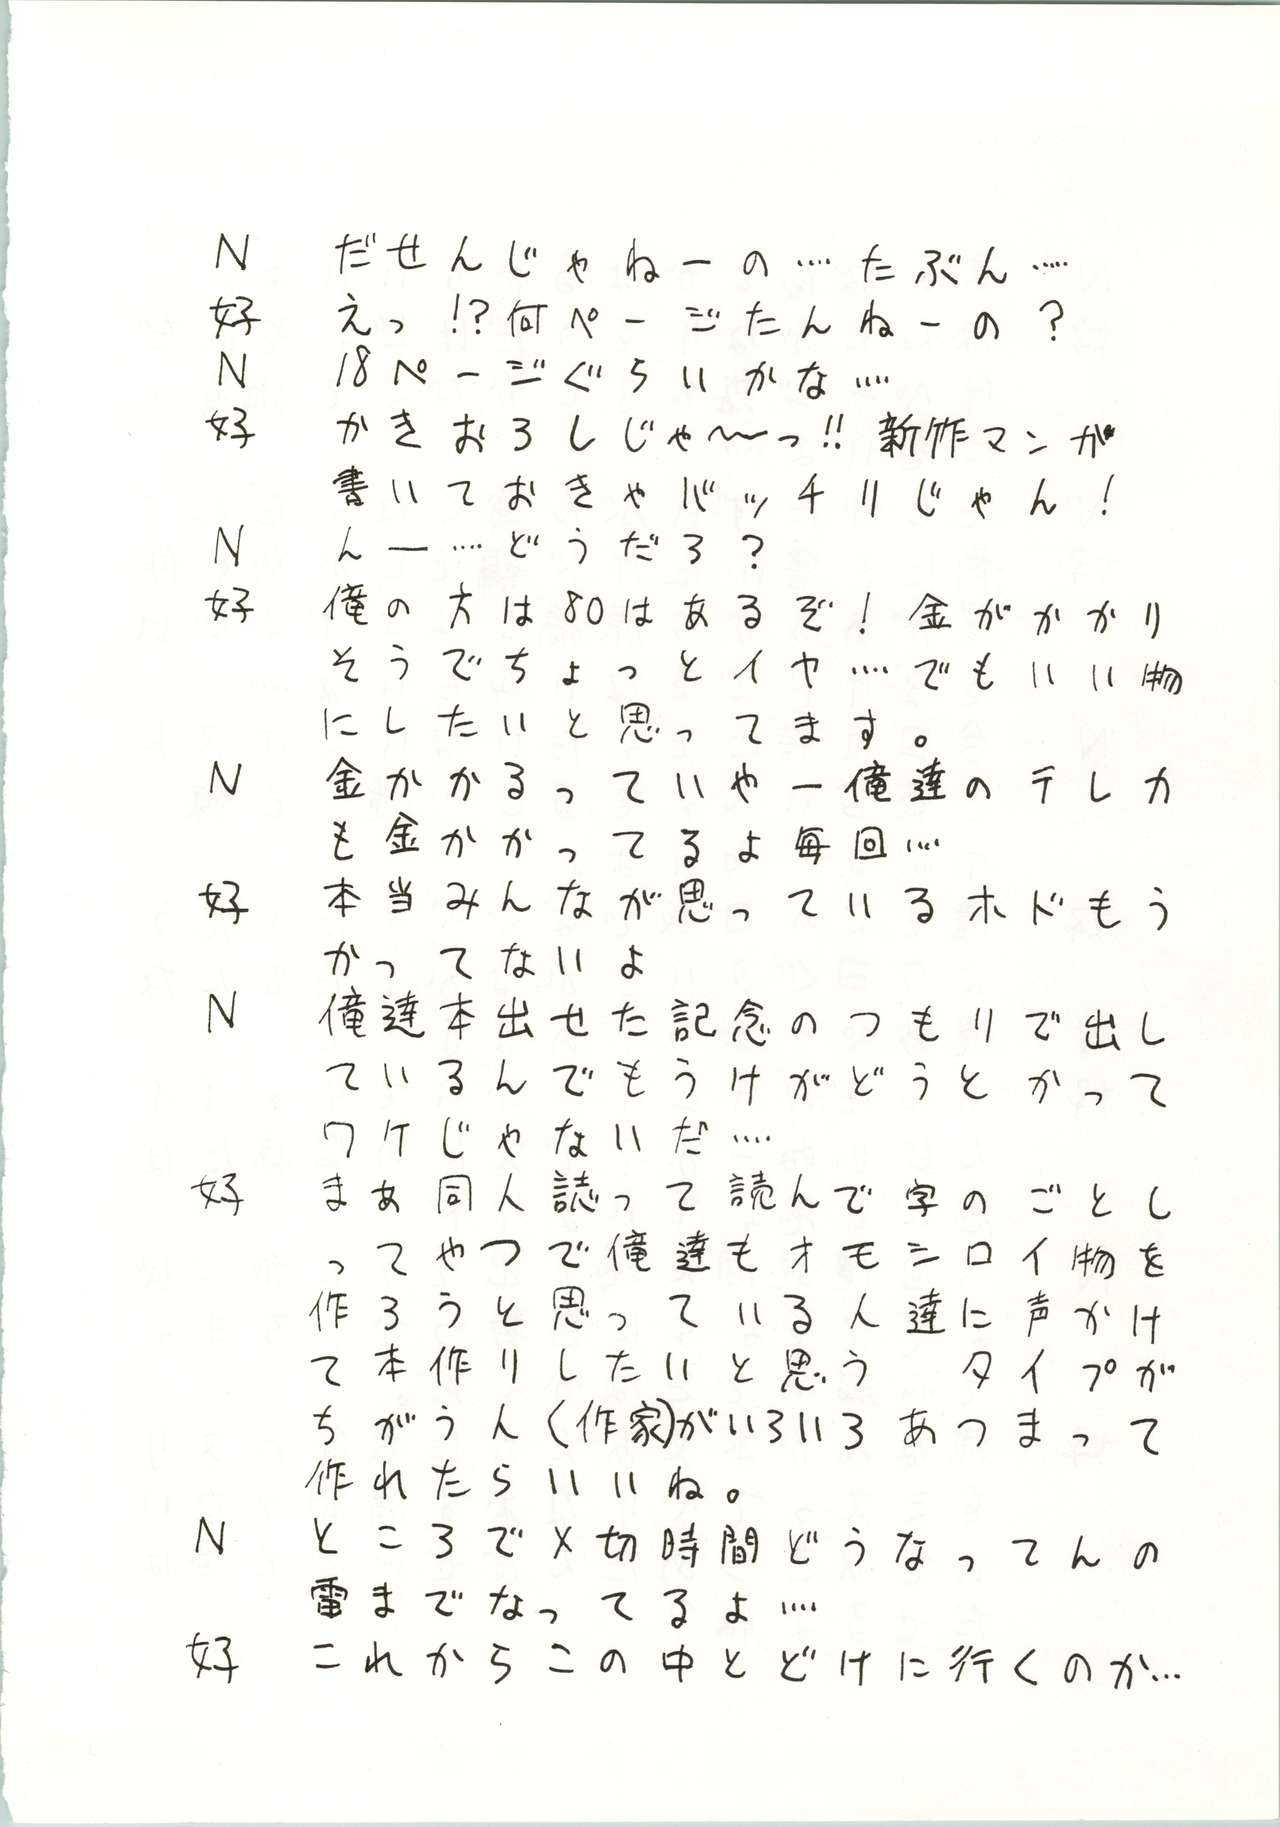 N だせんじゃねーの….たぶん…..
好 えっ!?何ページたんねーの?
N 18ページぐらいかな….
好 かきおろしじゃ〜〜っ!!新作マンが
書いておきゃバッチリじゃん!
N んー….どうだろ?
好 俺の方は80はあるぞ!金がかかり
そうでちょっとイヤ….でもいい物
にしたいと思ってます。
N 金かかるっていやー俺達のテレカ
も金かかってるよ毎回…
好 本当みんなが思っているホドもう
かってないよ
N 俺達本出せた記念のつもりで出し
ているんでもうけがどうとかって
ワケじゃないだ….
好 まぁ同人誌って読んで字のごとし
ってやつで俺達もオモシロイ物を
作ろうと思っている人達に声かけ
て本作りしたいと思う タイプが
ちがうん(作家)がいろいろあつまって
作れたらいいね。
N ところで〆切時間どうなってんの
雷までなってるよ….
好 これからこの中とどけに行くのか…